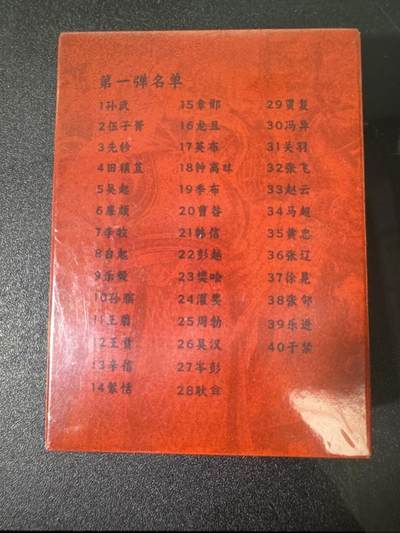 第一弹名单
1孙武
2伍子胥
3先轸
4田穰苴
5吴起
6廉颇
7李牧
8白起
9乐毅
10孙膑
11王翦
12王贲
13李信
14蒙恬
15章邯
16龙且
17英布
18钟离眜
19季布
20曹咎
21韩信
22彭越
23樊哙
24灌婴
25周勃
26吴汉
27岑彭
28耿弇
29贾复
30冯异
31关羽
32张飞
33赵云
34马超
35黄忠
36张辽
37徐晃
38张郃
39乐进
40于禁